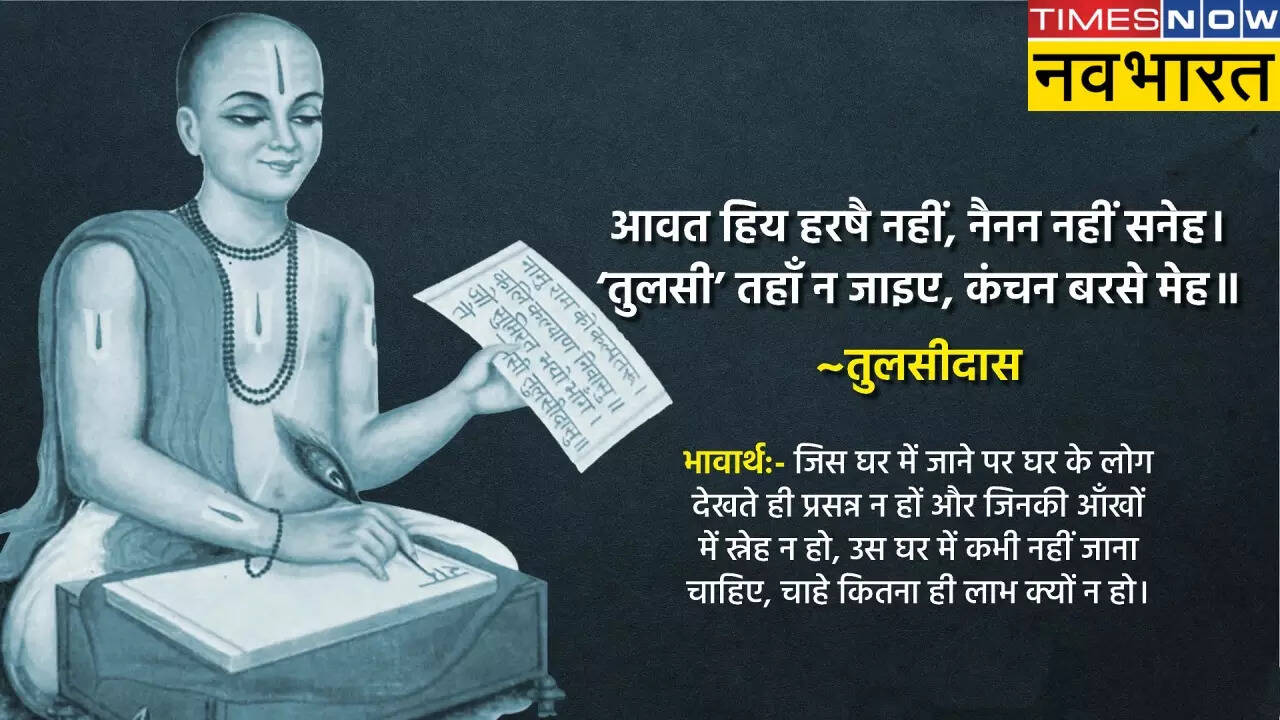 TIMES NOW
नवभारत
आवत हिय हरषै नहीं, नैनन नहीं सनेह।
‘तुलसी’ तहाँ न जाइए, कंचन बरसे मेह॥
~तुलसीदास
भावार्थ:- जिस घर में जाने पर घर के लोग
देखते ही प्रसन्न न हों और जिनकी आँखों
में स्नेह न हो, उस घर में कभी नहीं जाना
चाहिए, चाहे कितना ही लाभ क्यों न हो।
नामु राम को कलपतरू।
कलि कल्याण निवासु॥
जो सुमिरत भयो भाँग।
तुलसीदासु॥
राम